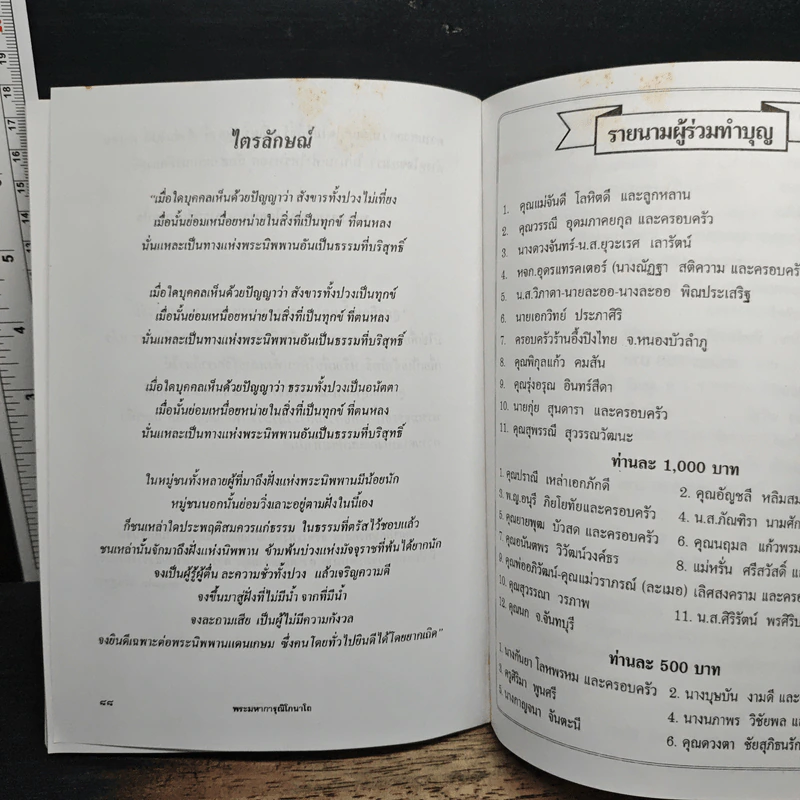 ไตรลักษณ์
"เมื่อใดบุคคลเห็นด้วยปัญญาว่า สังขารทั้งปวงไม่เที่ยง
เมื่อนั้นย่อมเหนื่อยหน่ายในสิ่งที่เป็นทุกข์ ที่ตนหลง
นั่นแหละเป็นทางแห่งพระนิพพานอันเป็นธรรมที่บริสุทธิ์
เมื่อใดบุคคลเห็นด้วยปัญญาว่า สังขารทั้งปวงเป็นทุกข์
เมื่อนั้นย่อมเหนื่อยหน่ายในสิ่งที่เป็นทุกข์ ที่ตนหลง
นั่นแหละเป็นทางแห่งพระนิพพานอันเป็นธรรมที่บริสุทธิ์
เมื่อใดบุคคลเห็นด้วยปัญญาว่า ธรรมทั้งปวงเป็นอนัตตา
เมื่อนั้นย่อมเหนื่อยหน่ายในสิ่งที่เป็นทุกข์ ที่ตนหลง
นั่นแหละเป็นทางแห่งพระนิพพานอันเป็นธรรมที่บริสุทธิ์
ในหมู่ชนทั้งหลายผู้ที่มาถึงฝั่งแห่งพระนิพพานมีน้อยนัก
หมู่ชนนอกนั้นย่อมวิ่งเลาะอยู่ตามฝั่งในนี้เอง
ก็ชนเหล่าใดประพฤติสมควรแก่ธรรม ในธรรมที่ตรัสไว้ชอบแล้ว
ชนเหล่านั้นจักมาถึงฝั่งแห่งนิพพาน ข้ามพ้นบ่วงแห่งมัจจุราชที่พ้นได้ยากนัก
จงเป็นผู้รู้ผู้ตื่น ละความชั่วทั้งปวง แล้วเจริญความดี
จงขึ้นมาสู่ฝั่งที่ไม่มีน้ำ จากที่มีน้ำ
จงละกามเสีย เป็นผู้ไม่มีความกังวล
จงยินดีเฉพาะต่อพระนิพพานแดนเกษม ซึ่งคนโดยทั่วไปยินดีได้โดยยากเถิด"
๘๘
พระมหาการุณิโกนาโถ
รายนามผู้ร่วมทำบุญ
1. คุณแม่จันดี โลหิตดี และลูกหลาน
2. คุณวรรณี อุดมภาคยกุล และครอบครัว
3. นางดวงจันทร์-น.ส.ยุวะเรศ เลารัตน์
4. หจก.อุดรแทรคเตอร์ (นางณัฏฐา สติความ และครอบครัว
5. น.ส.วิภาดา-นายละออ-นางละออ พิณประเสริฐ
6. นายเอกวิทย์ ประภาศิริ
7. ครอบครัวร้านอึ้งปิงไทย จ.หนองบัวลำภู
8. คุณพิกุลแก้ว คมสัน
9. คุณรุ่งอรุณ อินทร์สีดา
10. นายกุ่ย สุนดารา และครอบครัว
11. คุณสุพรรณี สุวรรณวัฒนะ
ท่านละ 1,000 บาท
1. คุณปราณี เหล่าเอกภักดี 2. คุณอัญชลี หลิมสม
3. พ.ญ.อนุรี ภิยโยทัยและครอบครัว 4. น.ส.ภัณฑิรา นามศัก
5. คุณยายพุฒ บัวสด และครอบครัว 6. คุณนฤมล แก้วพรม
7. คุณอนันตพร วิวัฒน์วงค์ธร 8. แม่หรั่น ศรีสวัสดิ์ แ
9. คุณพ่ออภิวัฒน์-คุณแม่วราภรณ์ (ละเมอ) เลิศสงคราม และครอ
10. คุณสุวรรณา วรภาพ 11. น.ส.ศิริรัตน์ พรศิริป
12. คุณนก จ.จันทบุรี
ท่านละ 500 บาท
1. นางกันยา โลหพรหม และครอบครัว 2. นางบุษบัน งามดี แล
3. ครูศิริมา พูนศรี 4. นางนภาพร วิชัยพล แ
5. นางกาญจนา จันตะนี 6. คุณดวงตา ชัยสุภิธนรัก